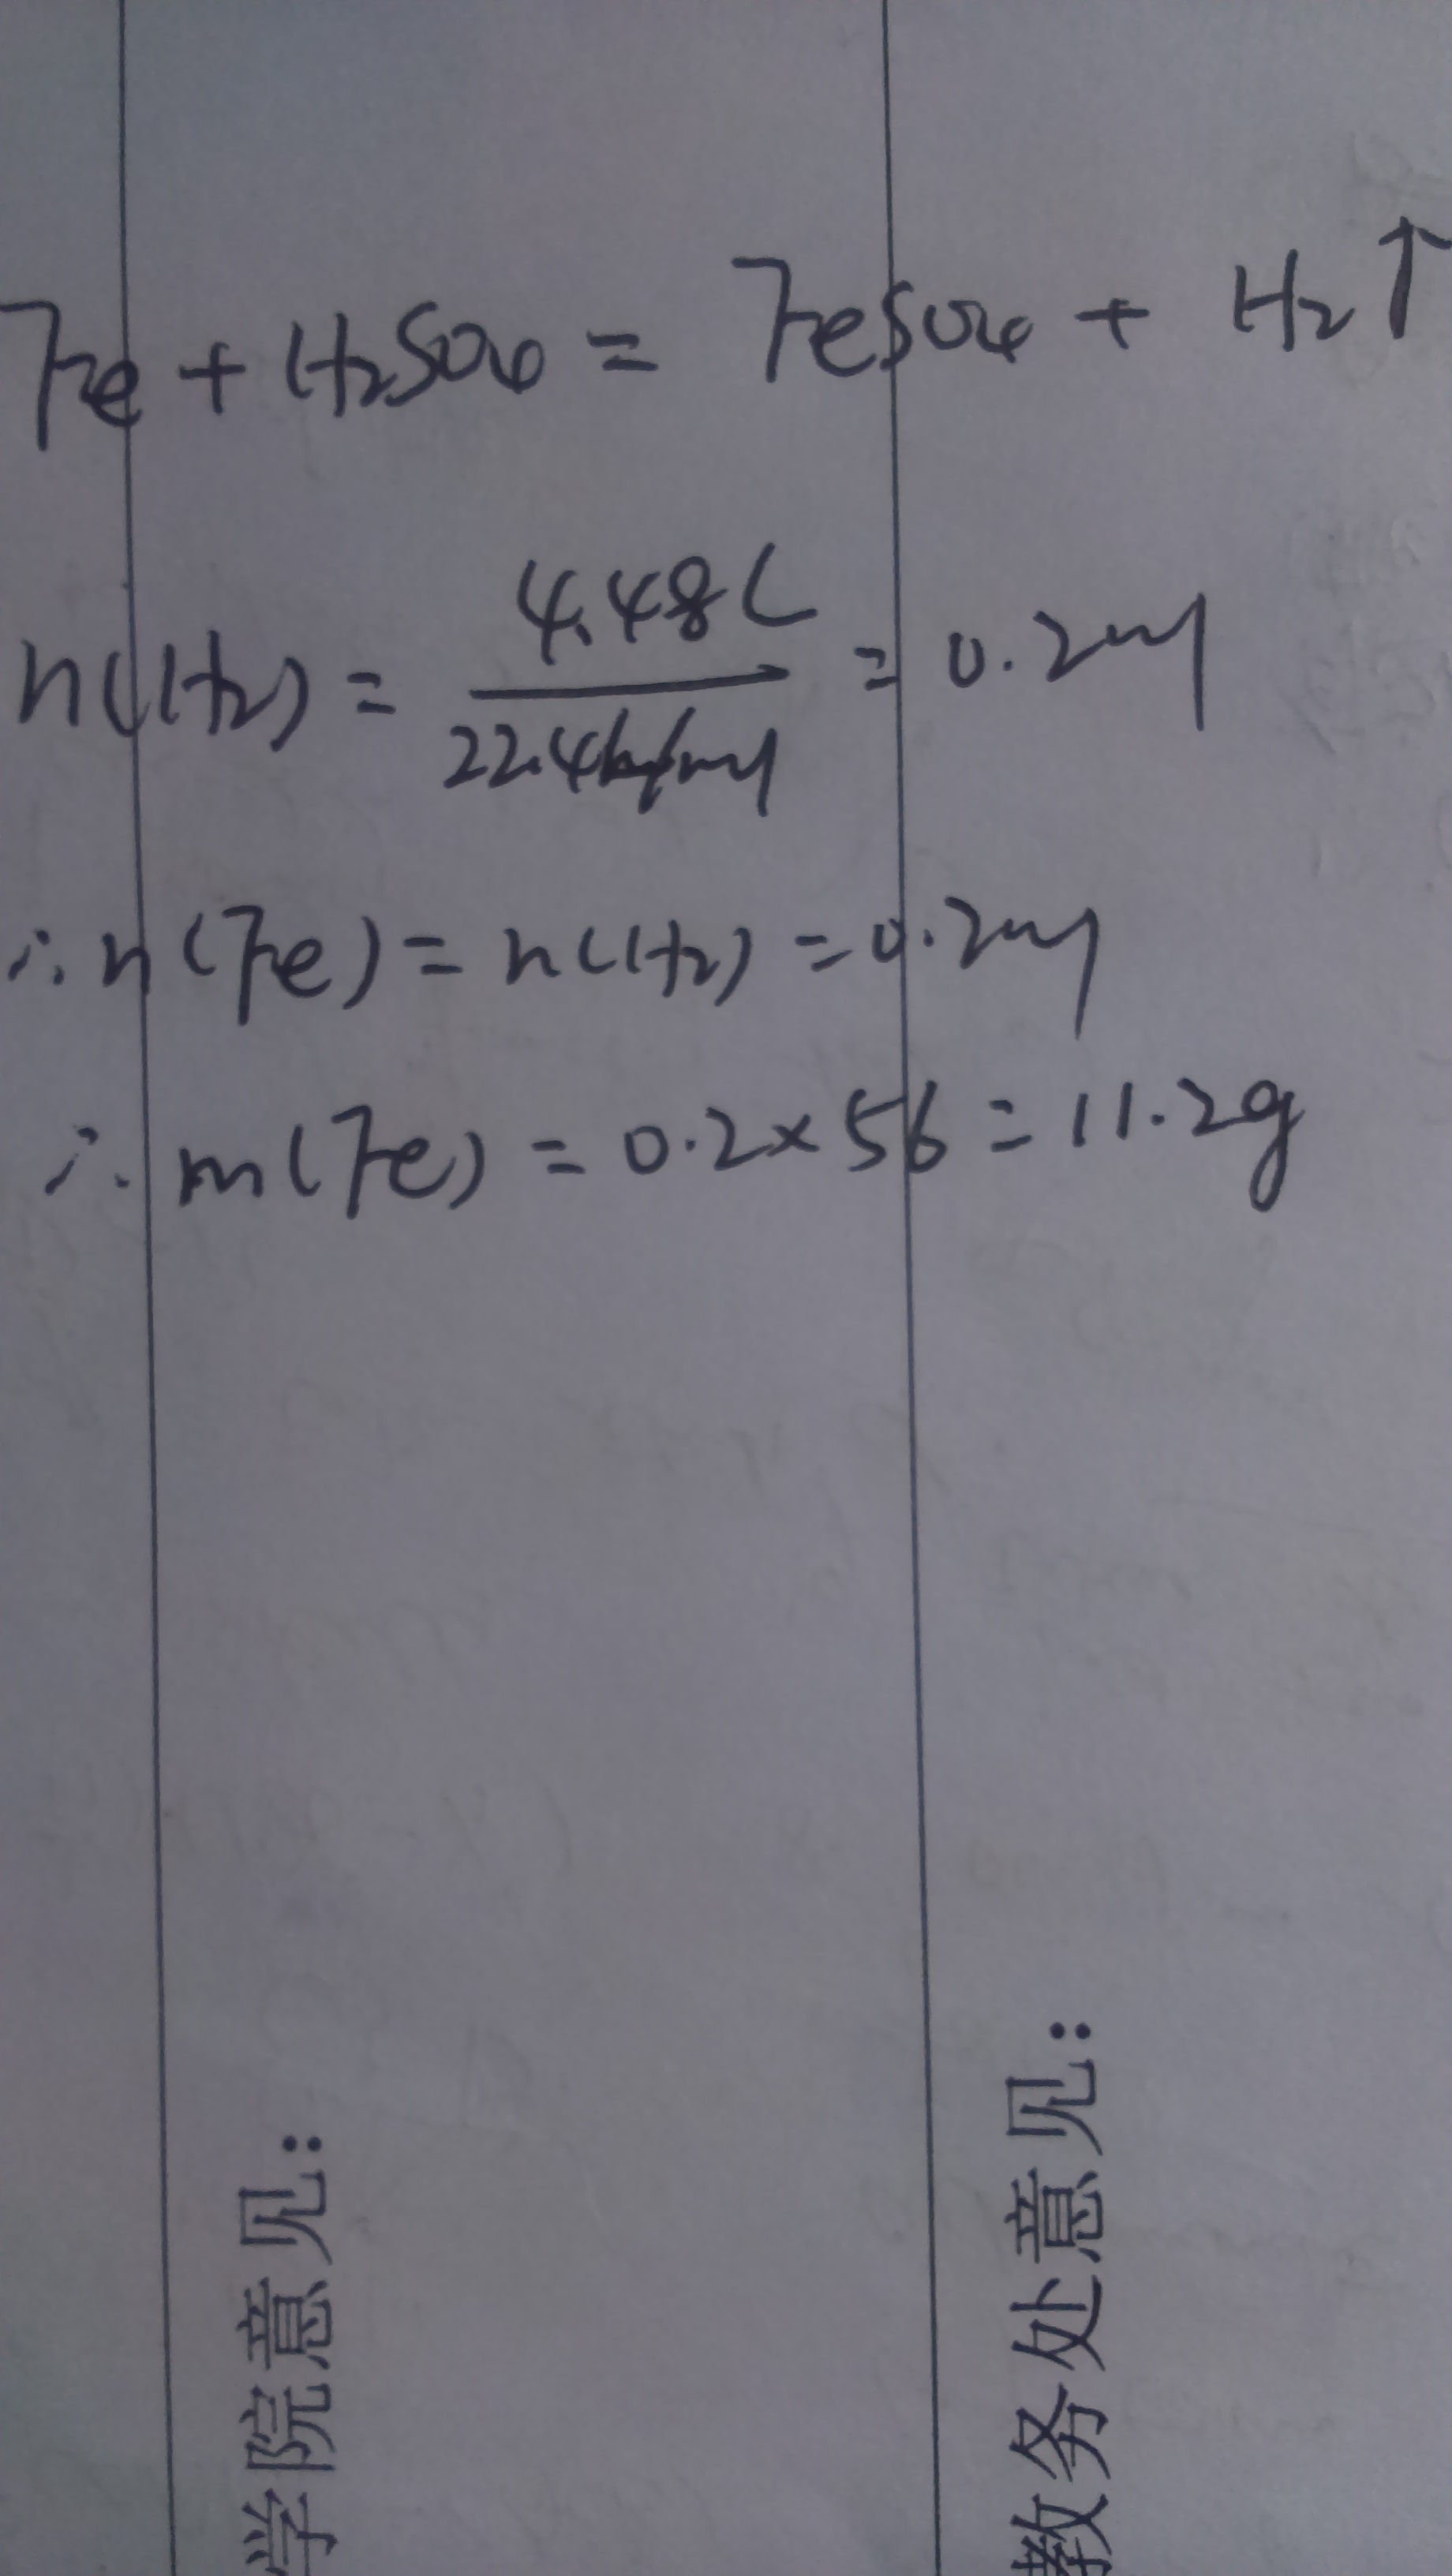 Fe + H₂SO₄ = FeSO₄ + H₂↑
n(H₂) = 4.48L / 22.4L/mol = 0.2mol
∴ n(Fe) = n(H₂) = 0.2mol
∴ m(Fe) = 0.2×56 = 11.2g
学院意见：
教务处意见：